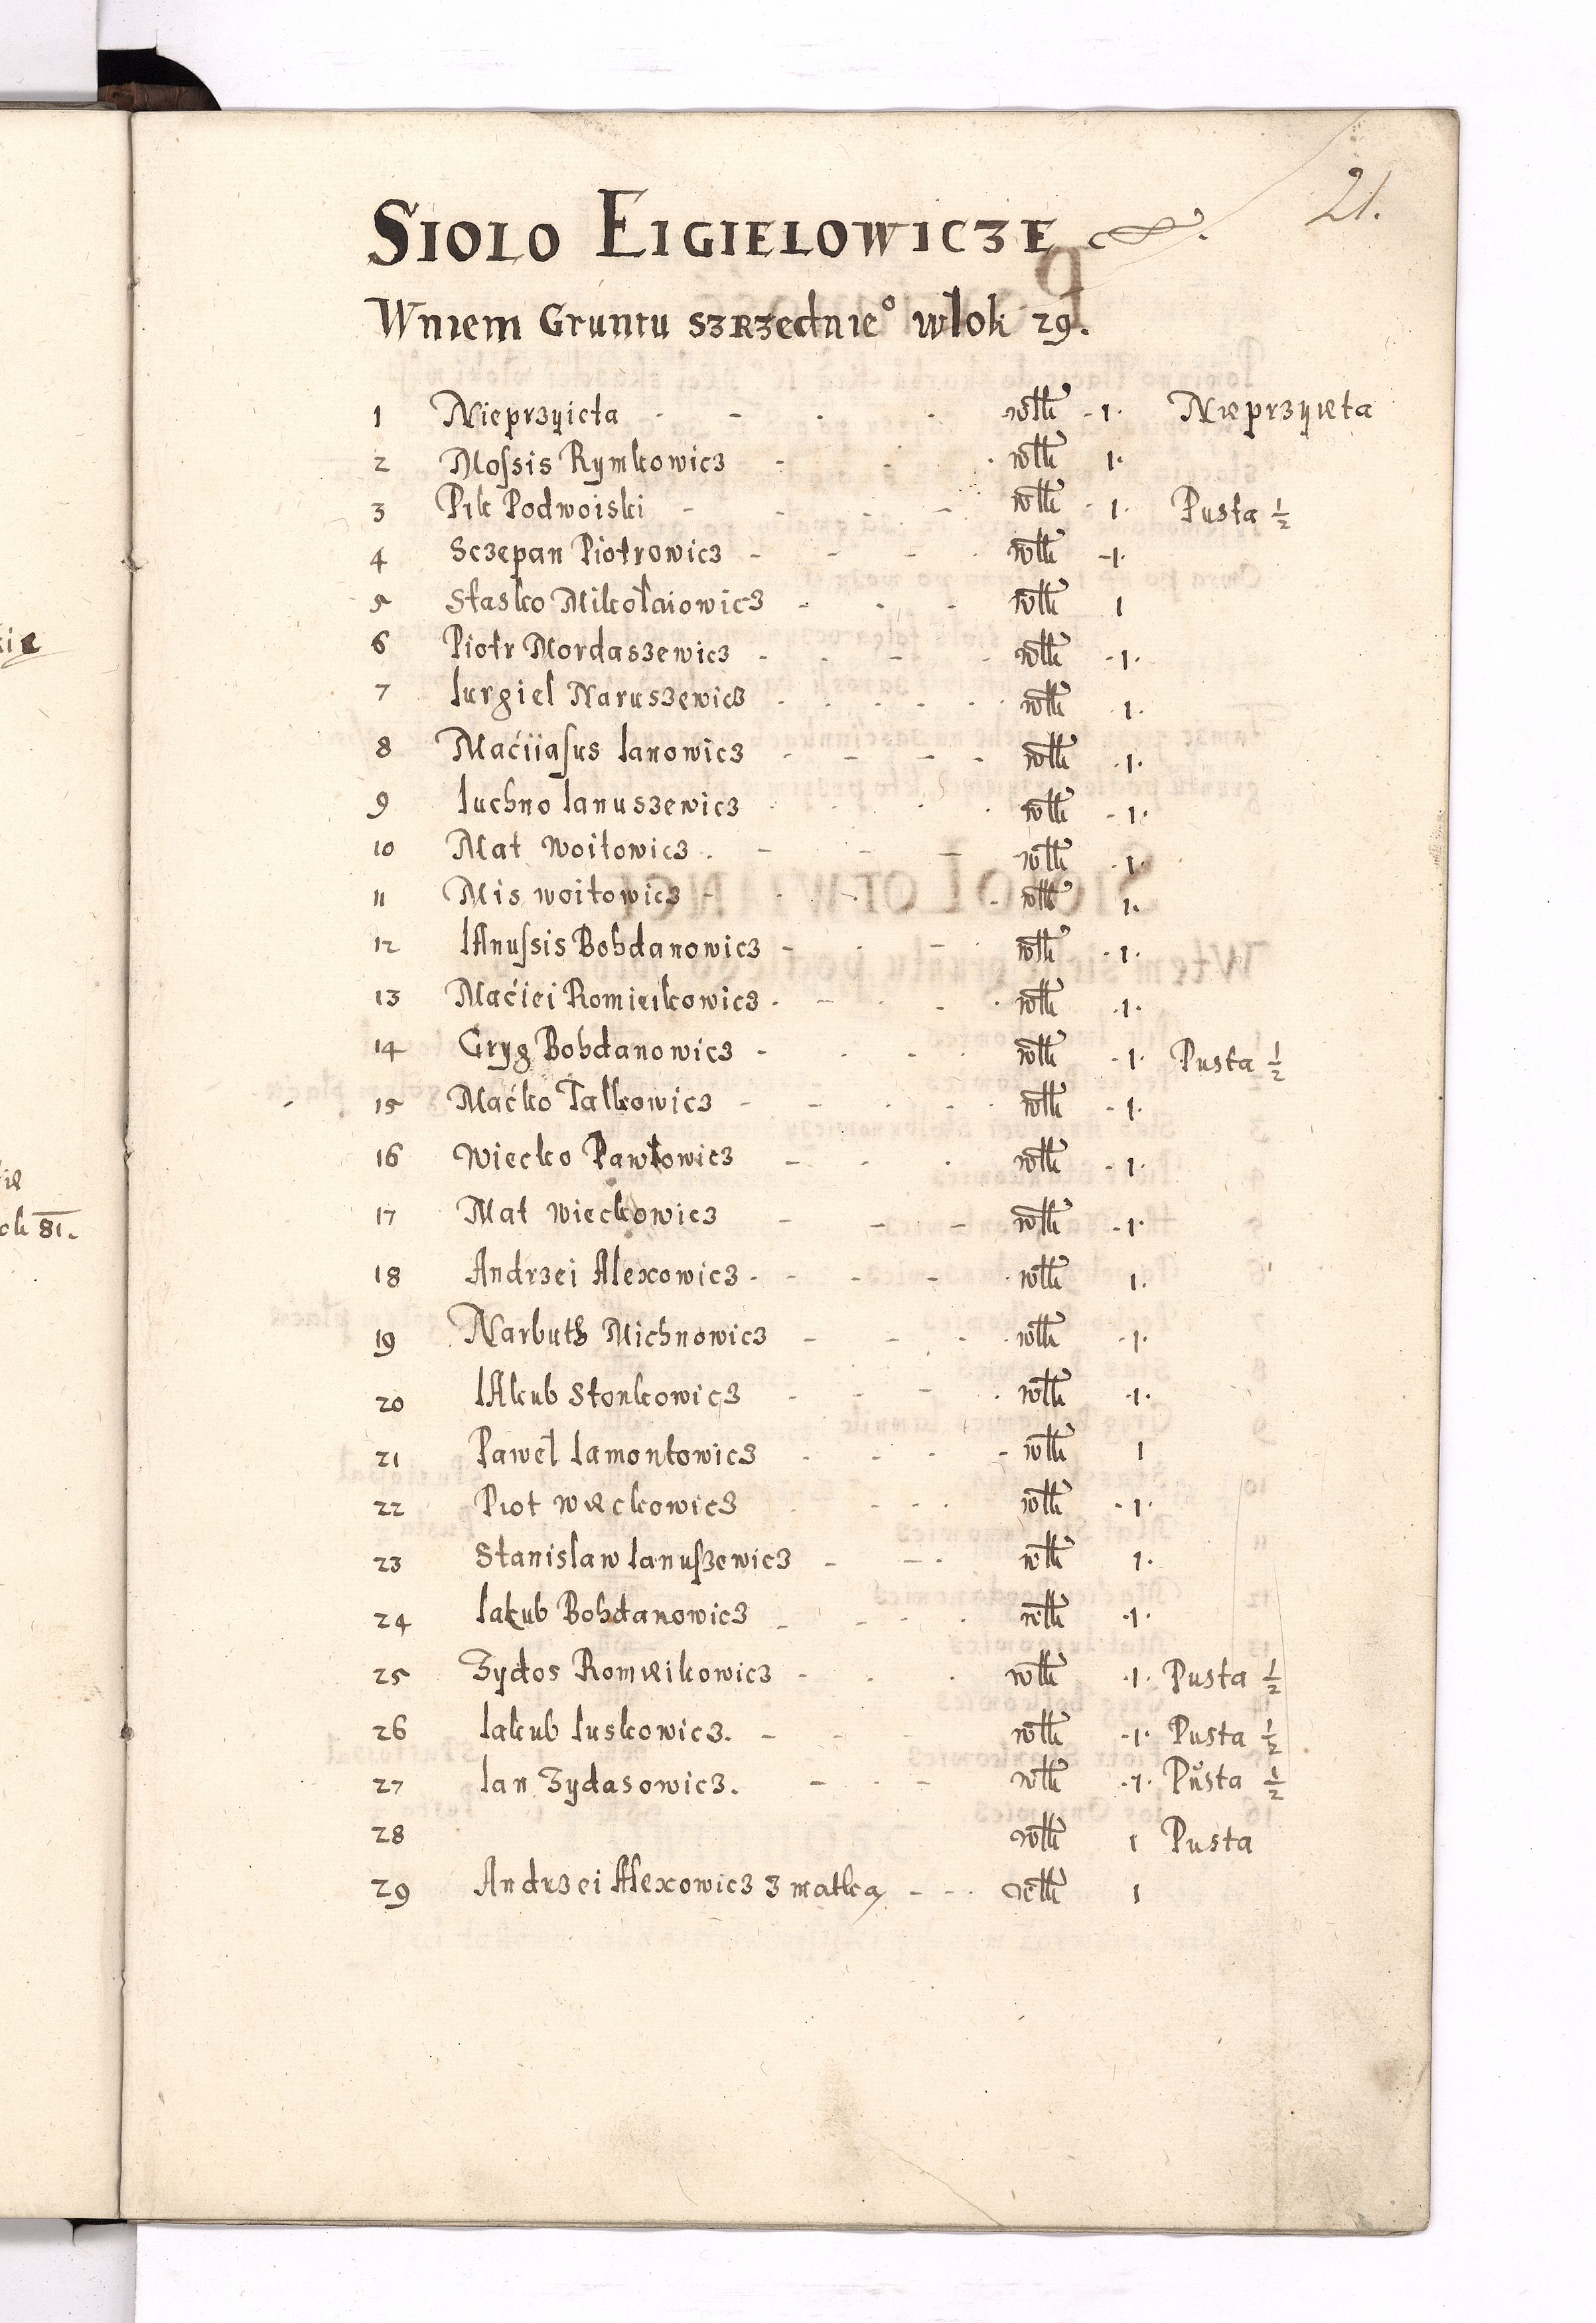 21.
SIOLO EIGIELOWICZE
Wniem Gruntu szrzednie° wlok 29.
1 Nieprzyieta - - - włk - 1. Nieprzyieta
2 Mossis Rymkowicz - - włk 1.
3 Pik Podwoiski - - - włk - 1. Pusta ½
4 Sczepan Piotrowicz - - - włk - 1.
5 Stasko Mikołaiowicz - - - włk 1
6 Piotr Mordaszewicz - - - włk - 1.
7 Iurgiel Naruszewicz - - - włk 1.
8 Maćiiasus Ianowicz - - - włk 1.
9 Iuchno Ianuszewicz - - - włk - 1.
10 Mat Woitowicz - - - włk 1.
11 Mis woitowicz - - - włk 1.
12 IAnussis Bohdanowicz - - - włk - 1.
13 Maćiei Romieikowicz - - - włk 1.
14 Gryg Bohdanowicz - - - włk - 1. Pusta ½
15 Maćko Talkowicz - - - włk - 1.
16 Wiecko Pawłowicz - - - włk - 1.
17 Mat Wieckowicz - - - włk - 1.
18 Andrzei Alexowicz - - - włk 1.
19 Narbuth Michnowicz - - - włk 1.
20 IAkub Stonkowicz - - - włk 1.
21 Paweł Iamontowicz - - - włk 1
22 Piot Wieckowicz - - - włk - 1.
23 Stanislaw Ianuszewicz - - - włk 1.
24 Iakub Bohdanowicz - - - włk 1.
25 Zydos Romieikowicz - - - włk 1. Pusta ½
26 Iakub Iuskowicz. - - - włk - 1. Pusta ½
27 Ian Zydasowicz. - - - włk 1. Pusta ½
28 włk 1 Pusta
29 Andrzei Alexowicz z matką - - - włk 1